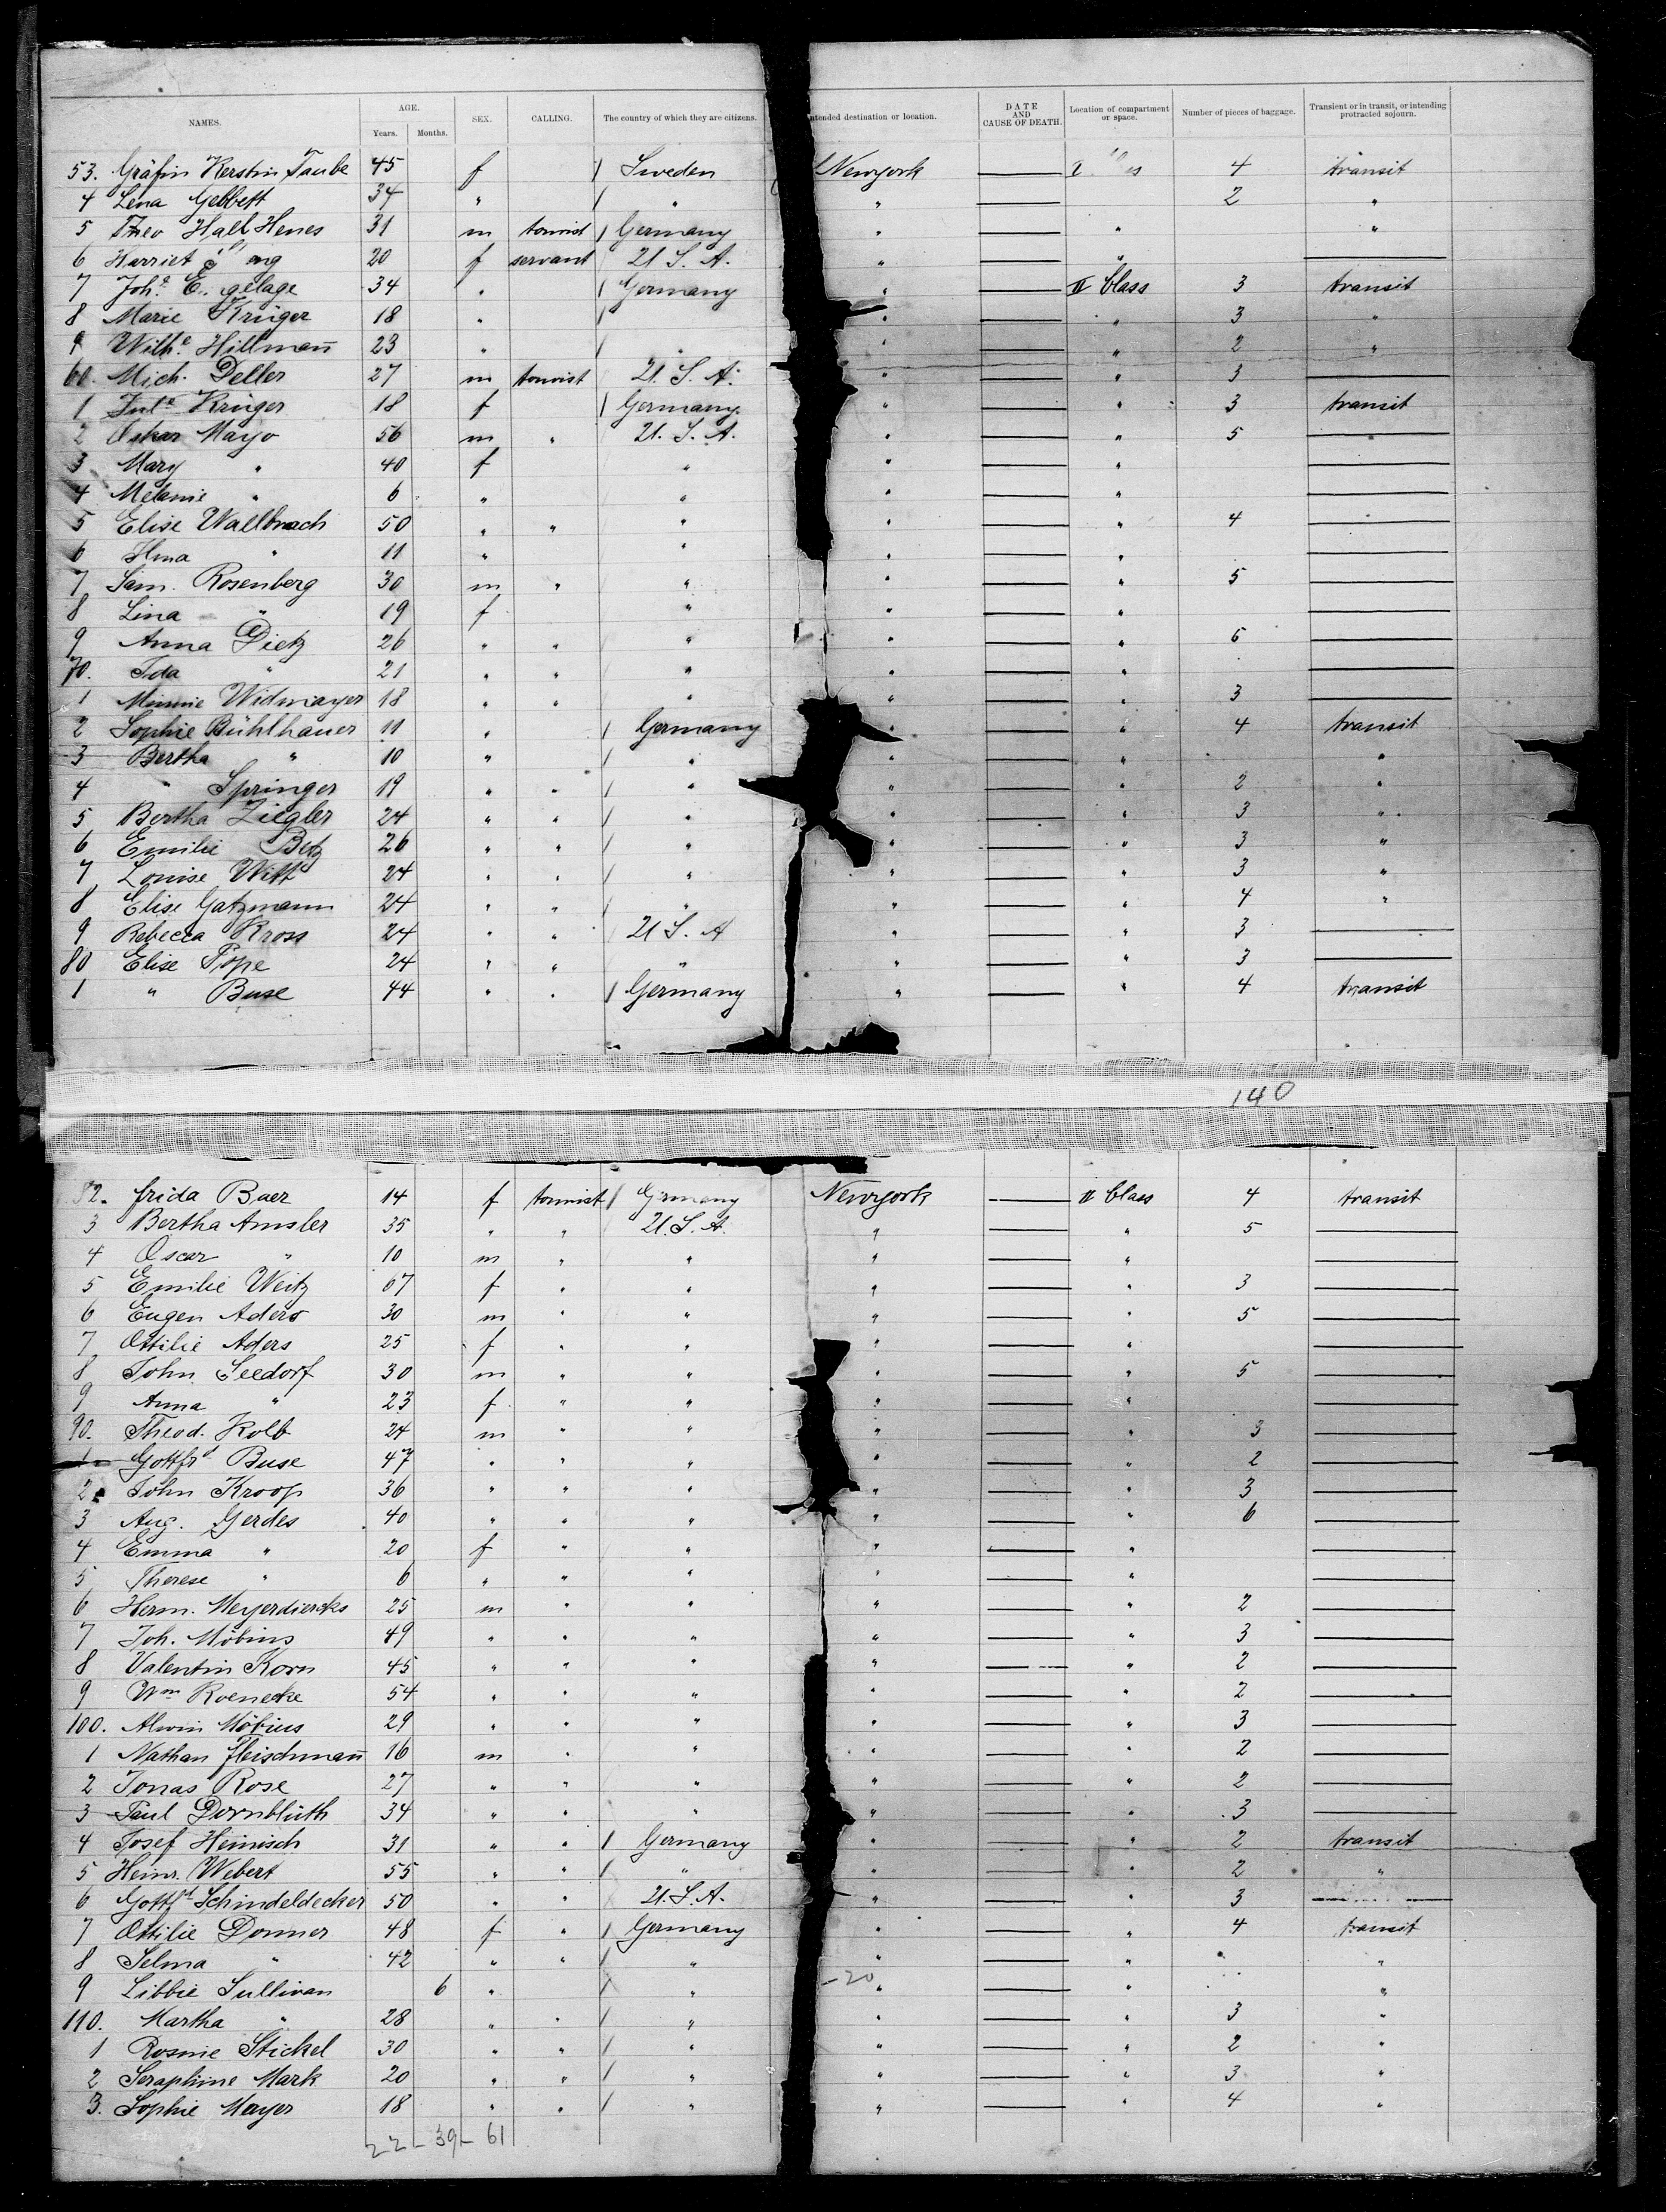 NAMES. AGE. Years. Months. SEX. CALLING. The country of which they are citizens. ntended destination or location. DATE AND CAUSE OF DEATH. Location of compartment or space. Number of pieces of baggage. Transient or in transit, or intending protracted sojourn.
53. Gräfin Kerstin Taube 45 f / Sweden Newyork — 4 transit
4 Lena Gebbett 34 " / " " — 2 "
5 Theo Hall Henes 31 m tourist / Germany " — " "
6 Harriet 20 f servant U. S. A. " — " —
7 Joh.e 34 " / Germany " — II Class 3 transit
8 Marie Krüger 18 " / " — " 3 "
9 Wilh.e Hillmañ 23 " / " " — " 2 "
60. Mich. Deller 27 m tourist U. S. A. " — " 3 —
1 Jule Krüger 18 f / Germany " — " 3 transit
2 Oskar Mayo 56 m " U. S. A. " — " 5 —
3 Mary " 40 f " " — " —
4 Melanie " 6 " " " — " —
5 Elise Wallbrach 50 " " " " — " 4 —
6 " 11 " " " — " —
7 Sam. Rosenberg 30 m " " " — " 5 —
8 Lina " 19 f " " — " —
9 Anna Dietz 26 " " " " — " 6 —
70. Ida " 21 " " " " — " —
1 Minnie Widmayer 18 " " " " — " 3 —
2 Sophie Bühlhauer 11 " / Germany " — " 4 transit
3 Bertha " 10 " / " " — " "
4 " Springer 19 " " / " " — " 2 "
5 Bertha Ziegler 24 " " / " " — " 3 "
6 Emilie Betz 26 " " / " " — " 3 "
7 Louise Witt 24 " " / " " — " 3 "
8 Elise Gatzmann 24 " " / " " — " 4 "
9 Rebecca Kross 24 " " U. S. A " — " 3 —
80 Elise Pope 24 " " " " — " 3 —
1 " Buse 44 " " / Germany " — " 4 transit
140
82. Frida Baer 14 f tourist / Germany Newyork — II Class 4 transit
3 Bertha Amsler 35 " " U. S. A. " — " 5 —
4 Oscar " 10 m " " " — " —
5 Emilie Weitz 67 f " " " — " 3 —
6 Eugen Aders 30 m " " " — " 5 —
7 Ottilie Aders 25 f " " " — " —
8 John Seedorf 30 m " " " — " 5 —
9 Anna " 23 f " " " — " —
90. Theod. Kolb 24 m " " " — " 3 —
1 Gottfrd Buse 47 " " " " — " 2 —
2 John Kroop 36 " " " " — " 3 —
3 Aug. Gerdes 40 " " " " — " 6 —
4 Emma " 20 f " " " — " —
5 Therese " 6 " " " " — " —
6 Herm. Meyerdiercks 25 m " " " — " 2 —
7 Joh. Möbius 49 " " " " — " 3 —
8 Valentin Korn 45 " " " " — " 2 —
9 Wm Roenecke 54 " " " " — " 2 —
100. Alwin Möbius 29 " " " " — " 3 —
1 Nathan Fleischmañ 16 m " " " — " 2 —
2 Jonas Rose 27 " " " " — " 2 —
3 Paul Dornblüth 34 " " " " — " 3 —
4 Josef Heinisch 31 " " / Germany " — " 2 transit
5 Heinr. Webert 55 " " / " " — " 2 "
6 Gottfd Schindeldecker 50 " " U. S. A. " — " 3 —
7 Ottilie Donner 48 f " / Germany " — " 4 transit
8 Selma " 42 " " / " " — " "
9 Libbie Sullivan 6 " / " -20 " — " "
110. Martha " 28 " " / " " — " 3 "
1 Rosine Stickel 30 " " / " " — " 2 "
2 Seraphine Mark 20 " " / " " — " 3 "
3. Sophie Mayer 18 " " / " " — " 4 "
22 - 39 - 61